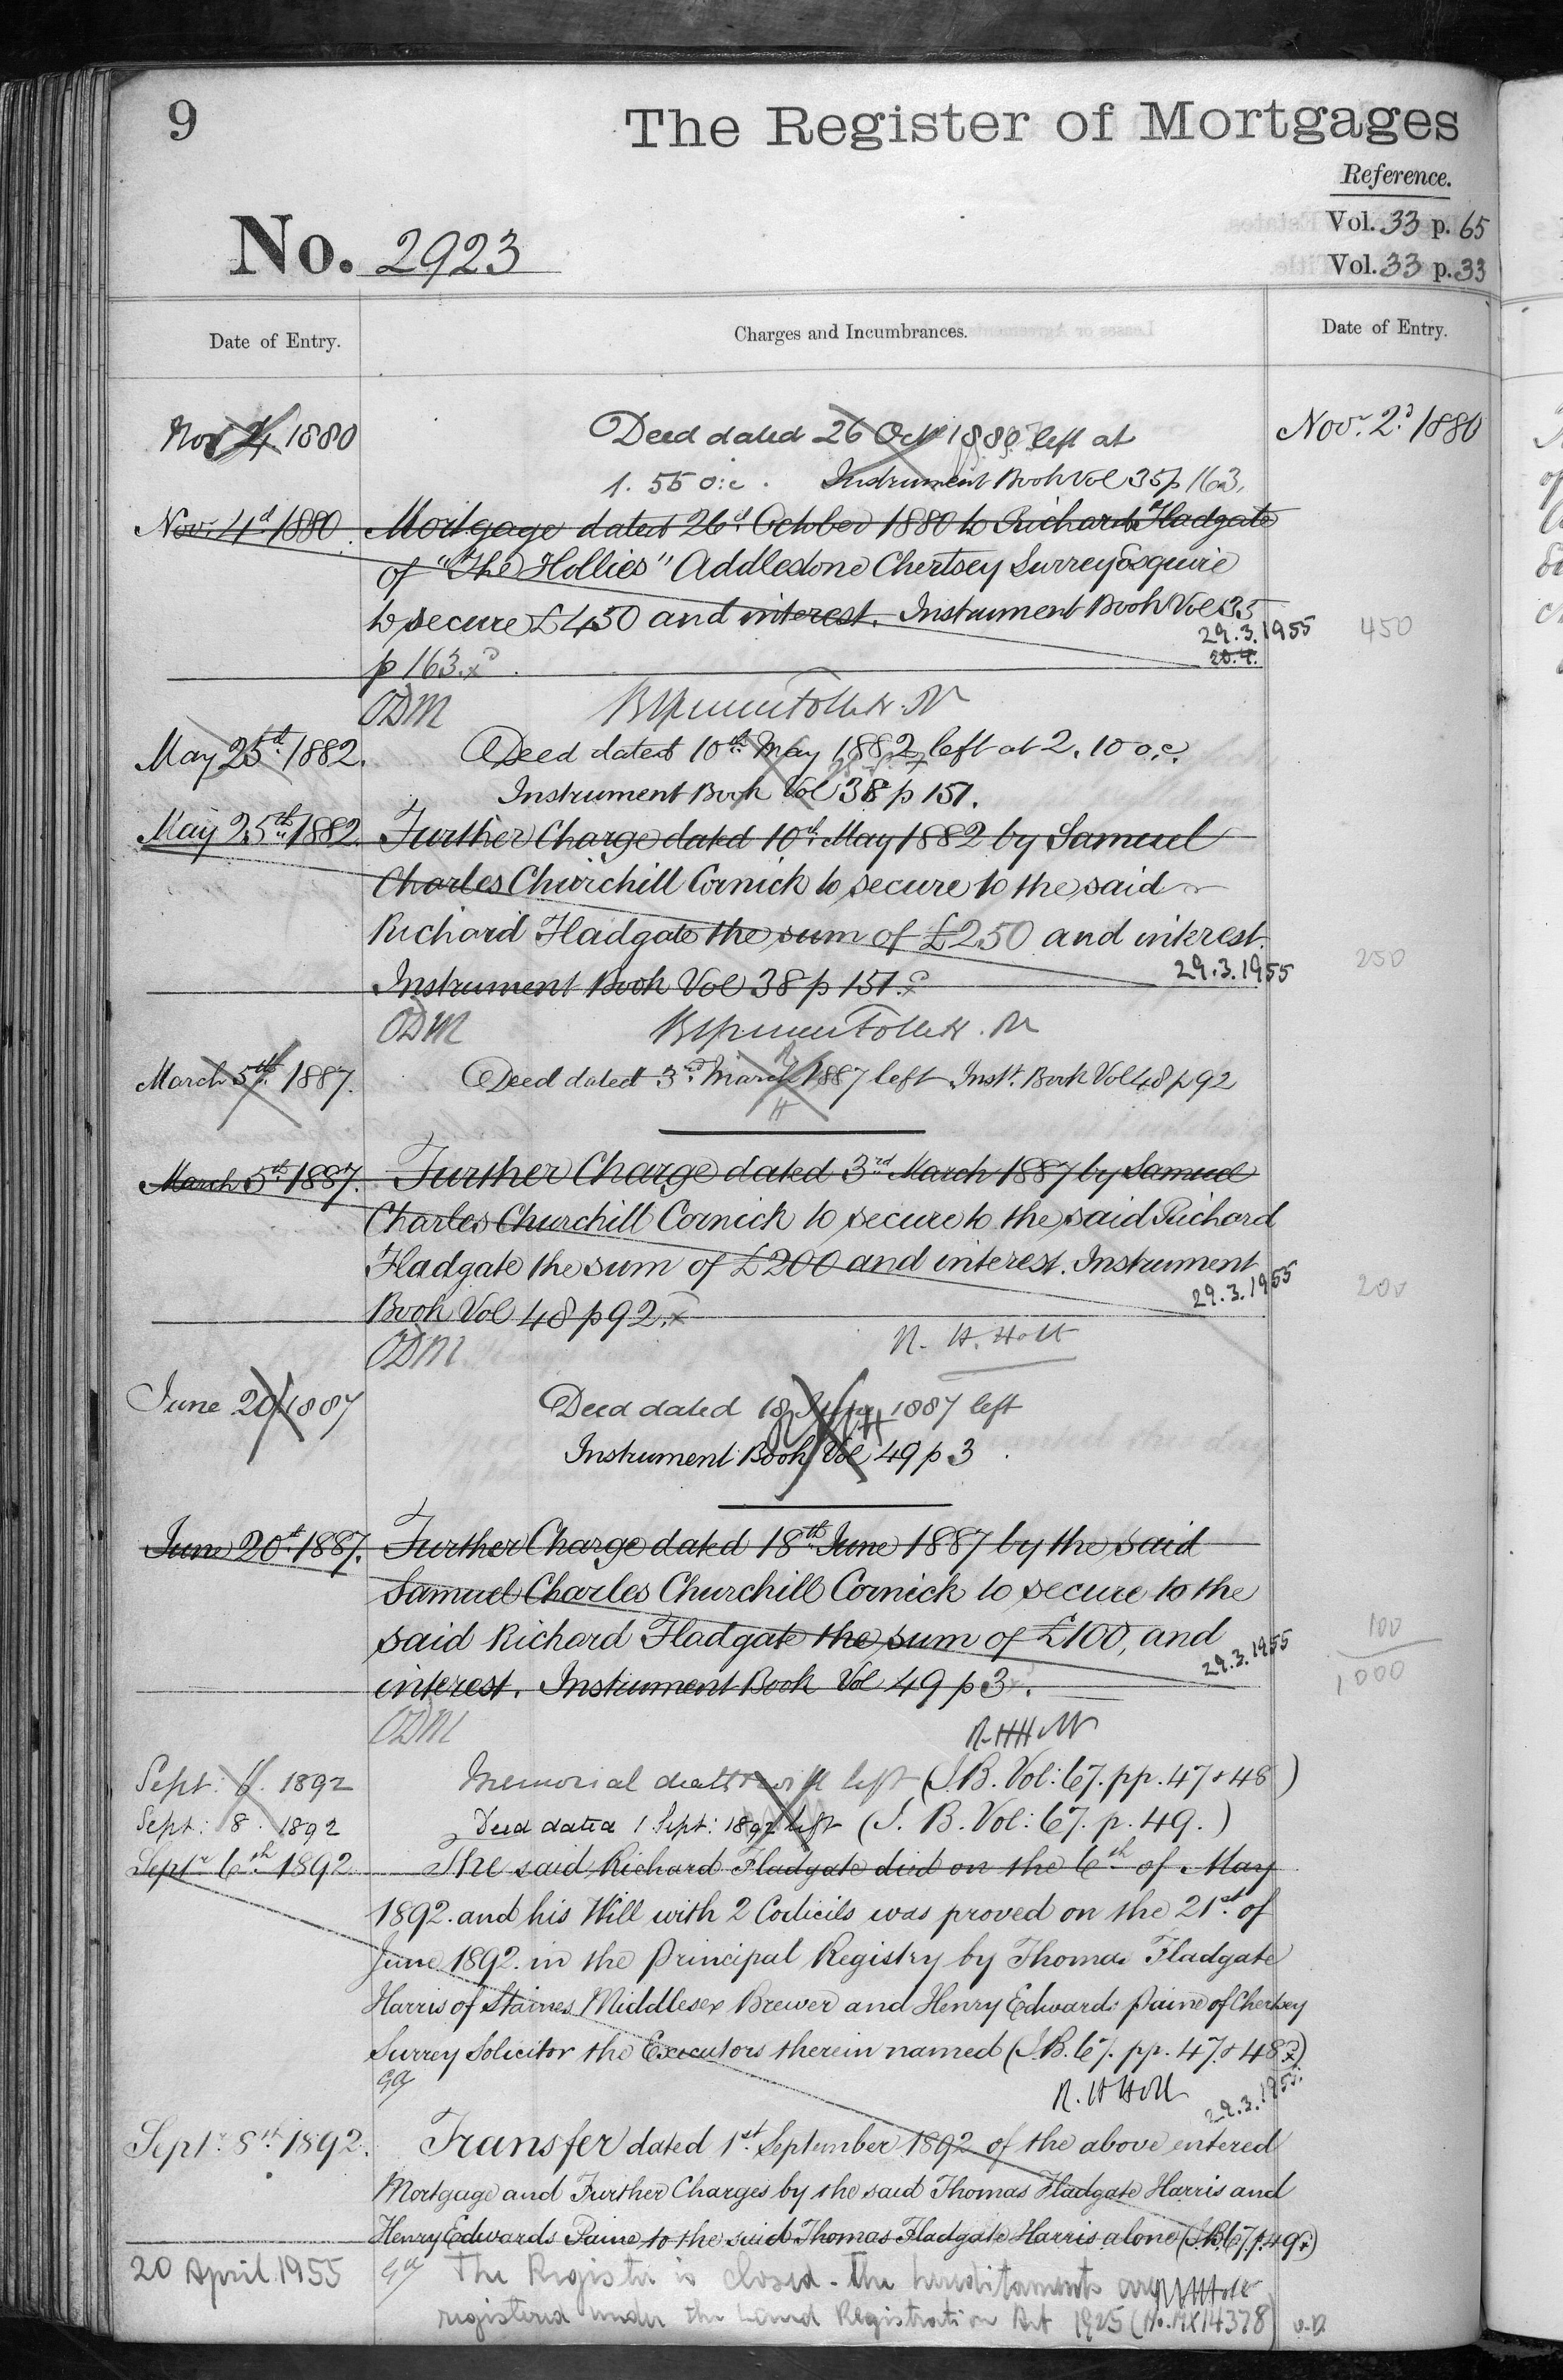 9
The Register of Mortgages
Reference.
No. 2923
Vol. 33 p. 65
Vol. 33 p. 33
Date of Entry.
Charges and Incumbrances.
Date of Entry.
Nov 2 1880
Deed dated 26 Oct 1880 left at
Nov. 2d 1880
1. 55 o.c. Instrument Book Vol 35 p 163.
Nov. 4th 1880
Mortgage dated 26th October 1880 to Richard Fladgate
of "The Hollies" Addlestone Chertsey Surrey Esquire
to secure £450 and interest. Instrument Book Vol 35
29.3.1955
450
20.4.
p 163.
ODM
May 25th 1882.
Deed dated 10th May 1882 left at 2.10 o.c.
Instrument Book Vol 38 p 151.
May 25th 1882
Further Charge dated 10th May 1882 by Samuel
Charles Churchill Cornick to secure to the said
Richard Fladgate the sum of £250 and interest.
Instrument Book Vol 38 p 151.
29.3.1955
250
ODM
March 5th 1887.
Deed dated 3rd March 1887 left Inst. Book Vol 48 p 92
March 5th 1887.
Further Charge dated 3rd March 1887 by Samuel
Charles Churchill Cornick to secure to the said Richard
Fladgate the sum of £200 and interest. Instrument
29.3.1955
200
Book Vol 48 p 92.
ODM
R. H. Holt
June 20 1887
Deed dated 18 June 1887 left
Instrument Book Vol 49 p 3
June 20th 1887.
Further Charge dated 18th June 1887 by the said
Samuel Charles Churchill Cornick to secure to the
said Richard Fladgate the sum of £100, and
29.3.1955
100
interest. Instrument Book Vol 49 p 3.
1000
ODM
R.H.Holt
Sept: 6. 1892
Memorial death & will left (I.B. Vol: 67. pp. 47 & 48)
Sept: 8. 1892
Deed dated 1 Sept: 1892 left (I. B. Vol: 67. p. 49.)
Septr 6th 1892
The said Richard Fladgate died on the 6th of May
1892. and his Will with 2 Codicils was proved on the 21st of
June 1892. in the Principal Registry by Thomas Fladgate
Harris of Staines Middlesex Brewer and Henry Edwards Paine of Chertsey
Surrey Solicitor the Executors therein named (I.B. 67. pp. 47 & 48)
R. H Holt
29.3.1955.
Septr 8th 1892.
Transfer dated 1st September 1892 of the above entered
Mortgage and Further Charges by the said Thomas Fladgate Harris and
Henry Edwards Paine to the said Thomas Fladgate Harris alone (I.B. 67 p. 49)
20 April 1955
The Register is closed. The hereditaments are
RHHolt
registered under the Land Registration Act 1925 (No. MX14378)